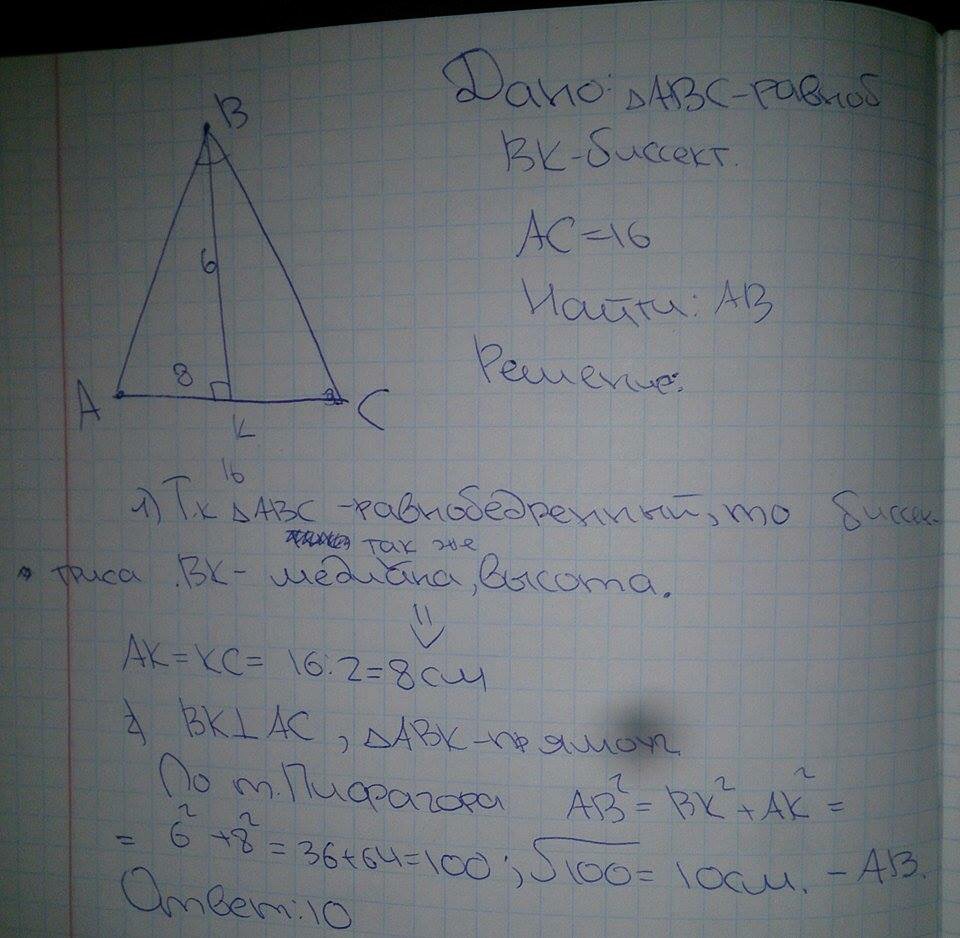 B
Дано: △ABC-равноб
BK-биссект.
6
AC=16
Найти: AB
Решение:
8
A
C
K
16
1) Т.к △ABC -равнобедренный, то биссек-
так же
триса BK- медиана, высота.
⇓
AK=KC= 16:2=8см
2) BK⊥AC, △ABK-прямоуг.
По т. Пифагора AB²=BK²+AK²=
= 6²+8²=36+64=100; √100=10см. - AB.
Ответ:10